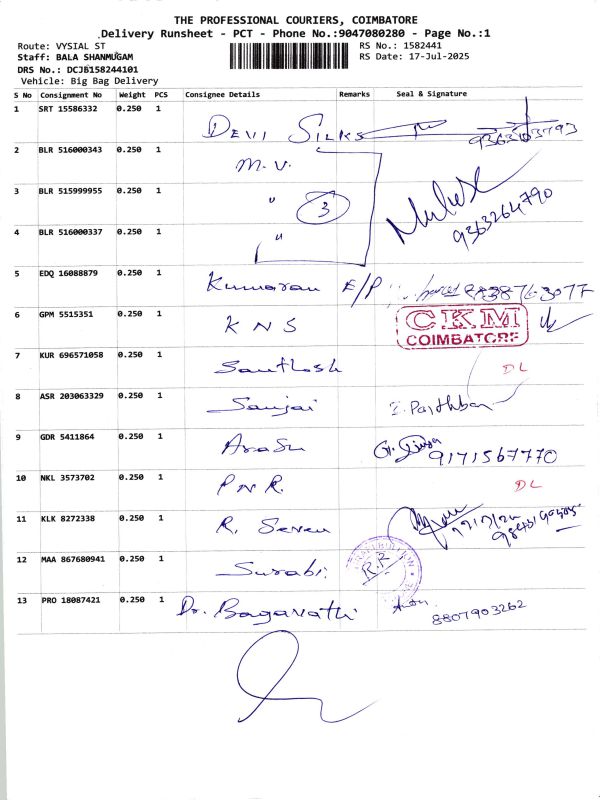 THE PROFESSIONAL COURIERS, COIMBATORE
Delivery Runsheet - PCT - Phone No.:9047080280 - Page No.:1
Route: VYSIAL ST
RS No.: 1582441
Staff: BALA SHANMUGAM
RS Date: 17-Jul-2025
DRS No.: DCJB158244101
Vehicle: Big Bag Delivery
S No Consignment No Weight PCS Consignee Details Remarks Seal & Signature
1 SRT 15586332 0.250 1 Devi Silks 9363103793
2 BLR 516000343 0.250 1 M.V.
3 BLR 515999955 0.250 1 " 3 9363264790
4 BLR 516000337 0.250 1 "
5 EDQ 16088879 0.250 1 Kumaran E/P
6 GPM 5515351 0.250 1 KNS CKM COIMBATORE
7 KUR 696571058 0.250 1 Santhosh DL
8 ASR 203063329 0.250 1 Sanjai
9 GDR 5411864 0.250 1 Arasu 9171567770
10 NKL 3573702 0.250 1 PNR. DL
11 KLK 8272338 0.250 1 R.
12 MAA 867680941 0.250 1 Surabi R.R
13 PRO 18087421 0.250 1 Dr. Bagavathi 8807903262